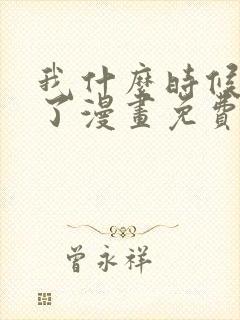 我什麼時候
了漫畫免費
曾永祥